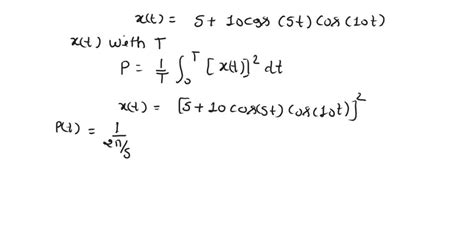 x(t) = 5 + 10 cos (5t) cos (10t)
x(t) with T
P = 1/T ∫₀ᵀ [x(t)]² dt
x(t) = [5 + 10 cos(5t) cos(10t)]²
P(t) = 1/(2π/5)